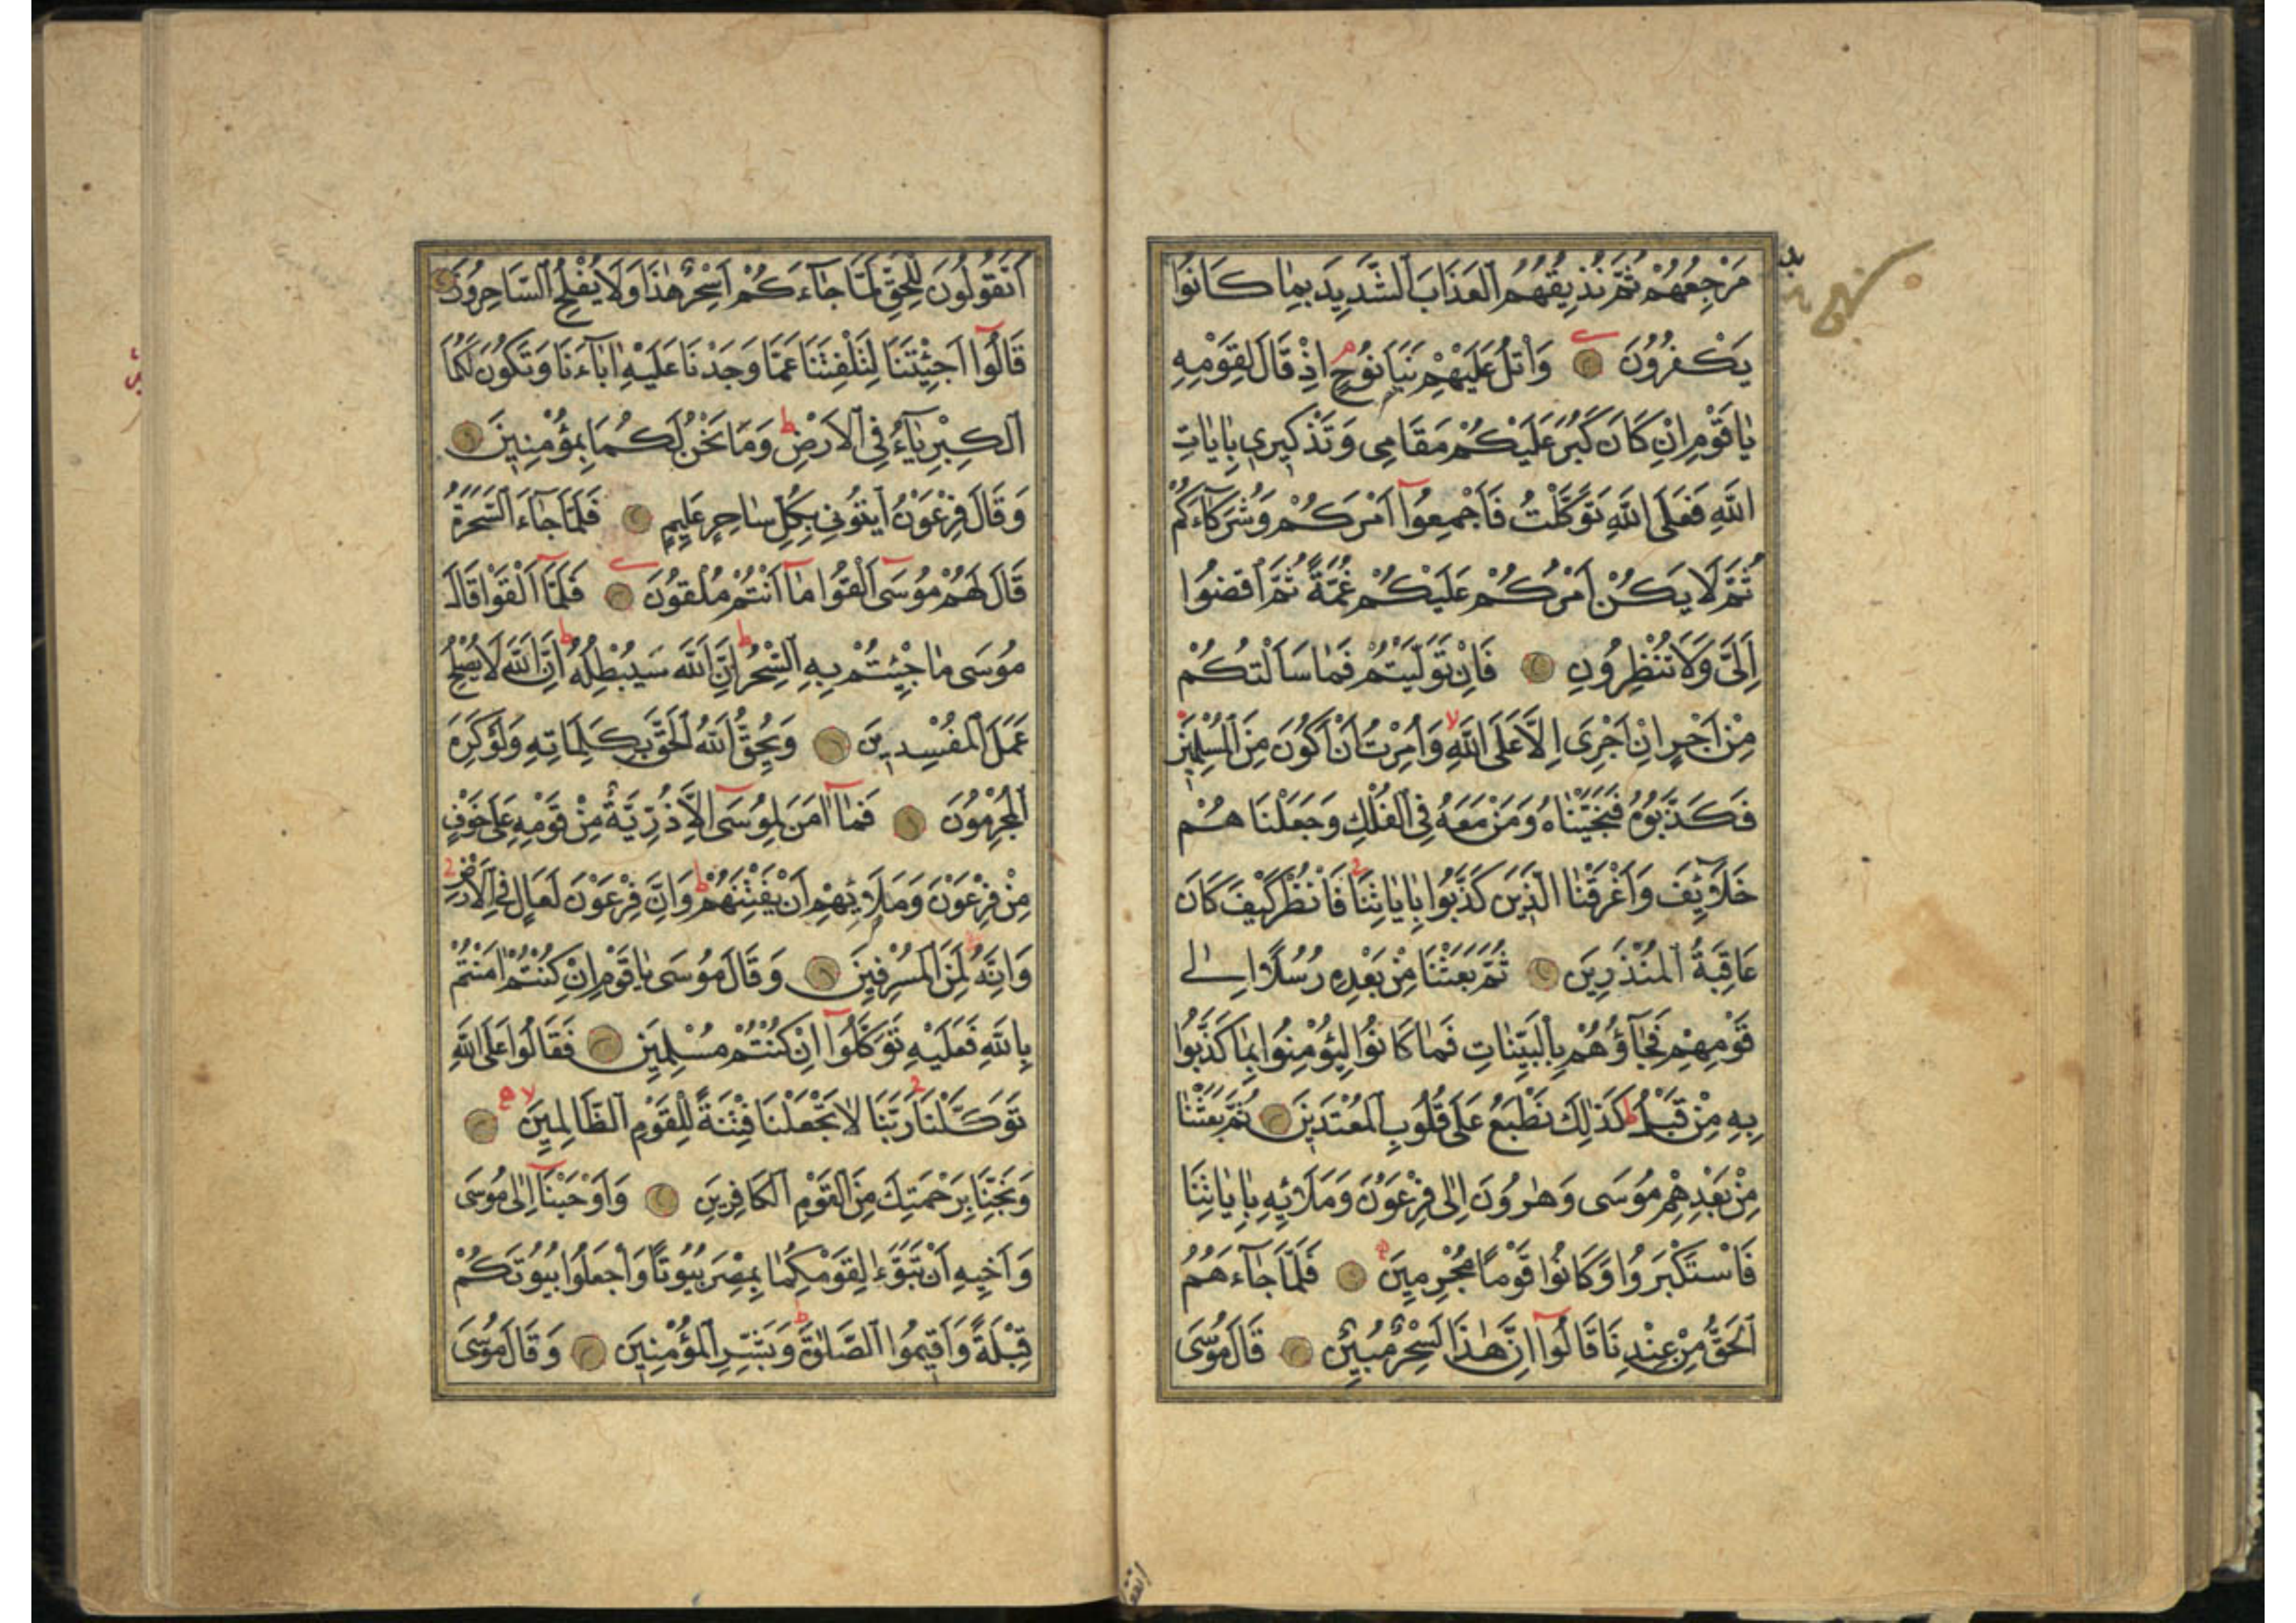 مَرْجِعُهُمْ ثُمَّ نُذِيقُهُمُ الْعَذَابَ الشَّدِيدَ بِمَا كَانُوا
يَكْفُرُونَ وَاتْلُ عَلَيْهِمْ نَبَأَ نُوحٍ اِذْ قَالَ لِقَوْمِهِ
يَا قَوْمِ اِنْ كَانَ كَبُرَ عَلَيْكُمْ مَقَامِى وَتَذْكِيرِى بِاٰيَاتِ
اللّٰهِ فَعَلَى اللّٰهِ تَوَكَّلْتُ فَاَجْمِعُوا اَمْرَكُمْ وَشُرَكَاءَكُمْ
ثُمَّ لَا يَكُنْ اَمْرُكُمْ عَلَيْكُمْ غُمَّةً ثُمَّ اقْضُوا
اِلَىَّ وَلَا تُنْظِرُونِ فَاِنْ تَوَلَّيْتُمْ فَمَا سَاَلْتُكُمْ
مِنْ اَجْرٍ اِنْ اَجْرِىَ اِلَّا عَلَى اللّٰهِ وَاُمِرْتُ اَنْ اَكُونَ مِنَ الْمُسْلِمِينَ
فَكَذَّبُوهُ فَنَجَّيْنَاهُ وَمَنْ مَعَهُ فِى الْفُلْكِ وَجَعَلْنَاهُمْ
خَلَائِفَ وَاَغْرَقْنَا الَّذِينَ كَذَّبُوا بِاٰيَاتِنَا فَانْظُرْ كَيْفَ كَانَ
عَاقِبَةُ الْمُنْذَرِينَ ثُمَّ بَعَثْنَا مِنْ بَعْدِهِ رُسُلًا اِلٰى
قَوْمِهِمْ فَجَاؤُهُمْ بِالْبَيِّنَاتِ فَمَا كَانُوا لِيُؤْمِنُوا بِمَا كَذَّبُوا
بِهِ مِنْ قَبْلُ كَذٰلِكَ نَطْبَعُ عَلَى قُلُوبِ الْمُعْتَدِينَ ثُمَّ بَعَثْنَا
مِنْ بَعْدِهِمْ مُوسَى وَهٰرُونَ اِلٰى فِرْعَوْنَ وَمَلَائِهِ بِاٰيَاتِنَا
فَاسْتَكْبَرُوا وَكَانُوا قَوْمًا مُجْرِمِينَ فَلَمَّا جَاءَهُمُ
الْحَقُّ مِنْ عِنْدِنَا قَالُوا اِنَّ هٰذَا لَسِحْرٌ مُبِينٌ قَالَ مُوسَى
اَتَقُولُونَ لِلْحَقِّ لَمَّا جَاءَكُمْ اَسِحْرٌ هٰذَا وَلَا يُفْلِحُ السَّاحِرُونَ
قَالُوا اَجِئْتَنَا لِتَلْفِتَنَا عَمَّا وَجَدْنَا عَلَيْهِ اٰبَاءَنَا وَتَكُونَ لَكُمَا
الْكِبْرِيَاءُ فِى الْاَرْضِ وَمَا نَحْنُ لَكُمَا بِمُؤْمِنِينَ
وَقَالَ فِرْعَوْنُ ايتُونِى بِكُلِّ سَاحِرٍ عَلِيمٍ فَلَمَّا جَاءَ السَّحَرَةُ
قَالَ لَهُمْ مُوسَى اَلْقُوا مَا اَنْتُمْ مُلْقُونَ فَلَمَّا اَلْقَوْا قَالَ
مُوسَى مَا جِئْتُمْ بِهِ السِّحْرُ اِنَّ اللّٰهَ سَيُبْطِلُهُ اِنَّ اللّٰهَ لَا يُصْلِحُ
عَمَلَ الْمُفْسِدِينَ وَيُحِقُّ اللّٰهُ الْحَقَّ بِكَلِمَاتِهِ وَلَوْ كَرِهَ
الْمُجْرِمُونَ فَمَا اٰمَنَ لِمُوسَى اِلَّا ذُرِّيَّةٌ مِنْ قَوْمِهِ عَلَى خَوْفٍ
مِنْ فِرْعَوْنَ وَمَلَائِهِمْ اَنْ يَفْتِنَهُمْ وَاِنَّ فِرْعَوْنَ لَعَالٍ فِى الْاَرْضِ
وَاِنَّهُ لَمِنَ الْمُسْرِفِينَ وَقَالَ مُوسَى يَا قَوْمِ اِنْ كُنْتُمْ اٰمَنْتُمْ
بِاللّٰهِ فَعَلَيْهِ تَوَكَّلُوا اِنْ كُنْتُمْ مُسْلِمِينَ فَقَالُوا عَلَى اللّٰهِ
تَوَكَّلْنَا رَبَّنَا لَا تَجْعَلْنَا فِتْنَةً لِلْقَوْمِ الظَّالِمِينَ
وَنَجِّنَا بِرَحْمَتِكَ مِنَ الْقَوْمِ الْكَافِرِينَ وَاَوْحَيْنَا اِلٰى مُوسَى
وَاَخِيهِ اَنْ تَبَوَّءَا لِقَوْمِكُمَا بِمِصْرَ بُيُوتًا وَاجْعَلُوا بُيُوتَكُمْ
قِبْلَةً وَاَقِيمُوا الصَّلٰوةَ وَبَشِّرِ الْمُؤْمِنِينَ وَقَالَ مُوسَى